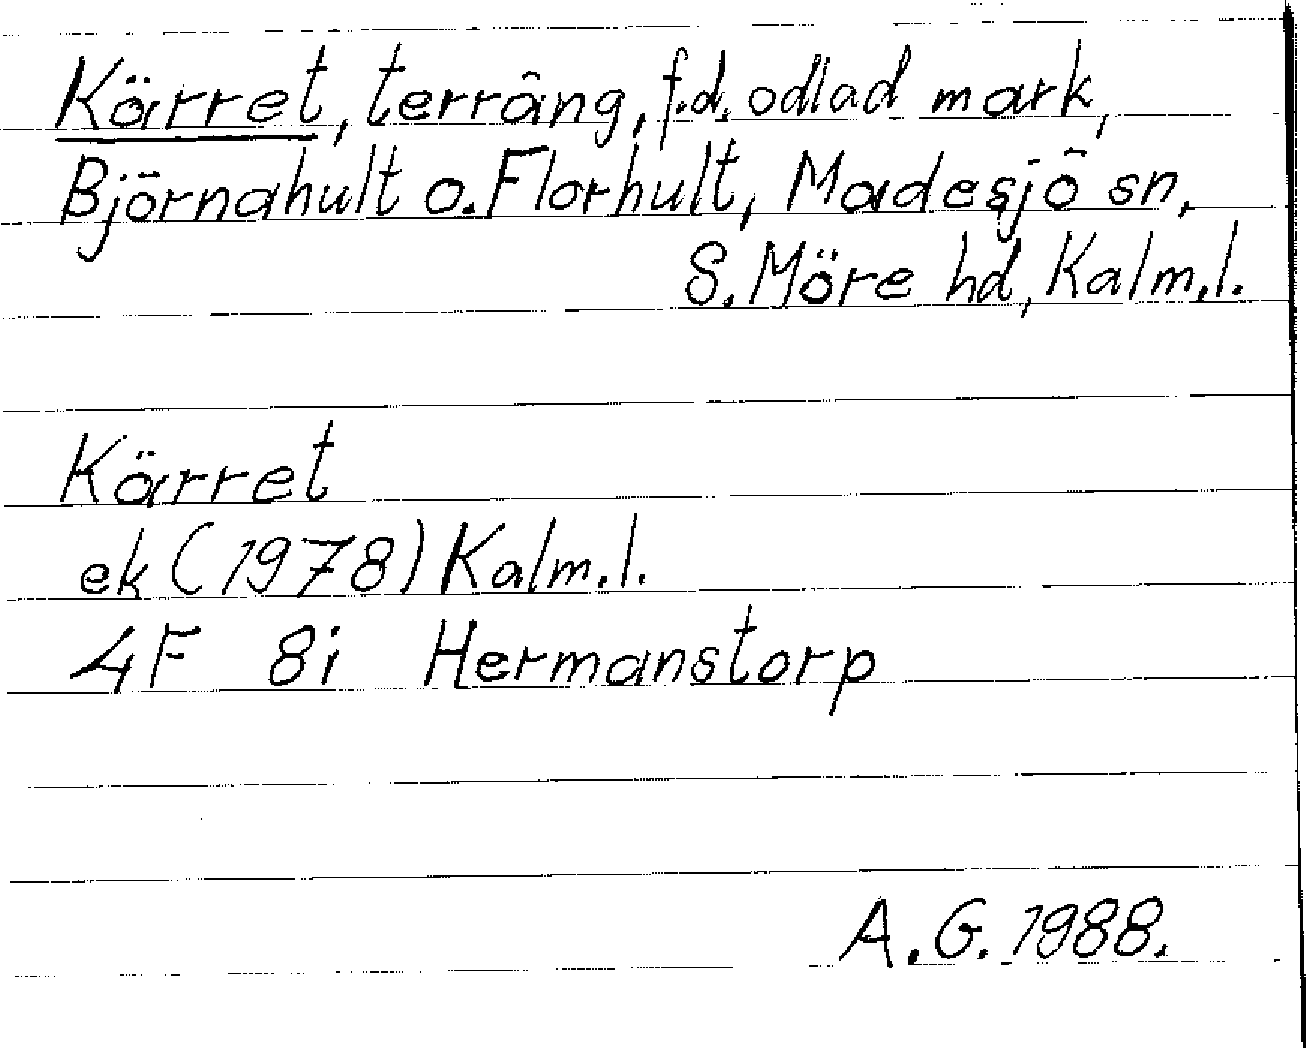 Kärret, terräng, f.d. odlad mark,
Björnahult o. Florhult, Madesjö sn,
S. Möre hd, Kalm.l.
Kärret
ek (1978) Kalm.l.
4F 8i Hermanstorp
A.G. 1988.